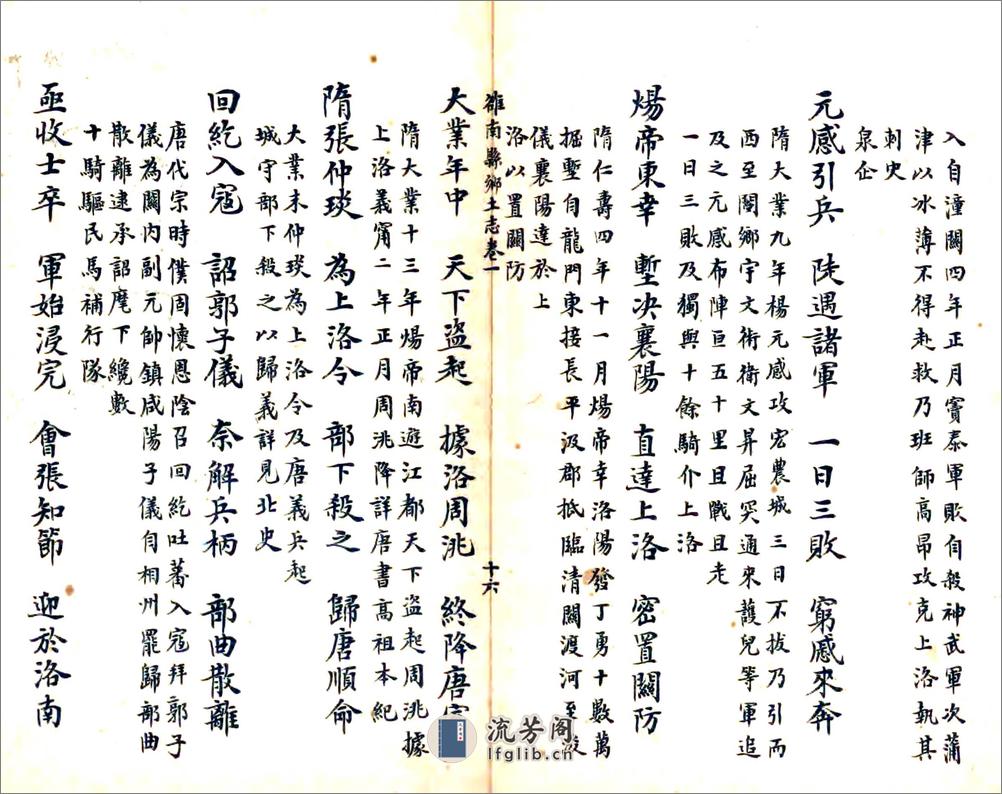 入自潼關四年正月竇泰軍敗自殺神武軍次蒲
津以冰薄不得赴救乃班師高昂攻克上洛執其
刺史
泉企
元感引兵　陡遇諸軍　一日三敗　窮感來奔
隋大業九年楊元感攻宏農城三日不拔乃引而
西至閿鄉宇文術衛文昇屈突通來護兒等軍追
及之元感布陣亘五十里且戰且走
一日三敗及獨與十餘騎介上洛
煬帝東幸　塹决襄陽　直達上洛　密置關防
隋仁壽四年十一月煬帝幸洛陽發丁勇十數萬
掘塹自龍門東接長平汲郡抵臨清關渡河至
儀襄陽達於上
洛以置關防
雒南縣鄉土志卷一　十六
大業年中　天下盜起　據洛周洮　終降唐
隋大業十三年煬帝南遊江都天下盜起周洮據
上洛義甯二年正月周洮降詳唐書高祖本紀
隋張仲琰　為上洛令　部下殺之　歸唐順命
大業末仲琰為上洛令及唐義兵起
城守部下殺之以歸義詳見北史
回紇入寇　詔郭子儀　奈解兵柄　部曲散離
唐代宗時僕固懷恩陰召回紇吐蕃入寇拜郭子
儀為關內副元帥鎮咸陽子儀自相州罷歸部曲
散離逮承詔麾下纔數
十騎驅民馬補行隊
亟收士卒　軍始浸完　會張知節　迎於洛南
流芳阁
lfglib.cn